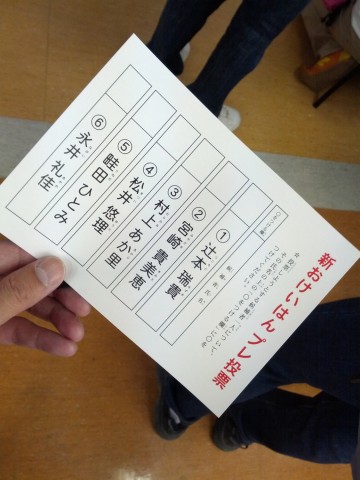 新おけいはん プレ投票
候補者氏名
① 辻本 瑞貴
② 宮崎 貴美恵
③ 村上 あか里
④ 松井 悠理
⑤ 畦田 ひとみ
⑥ 永井 礼佳